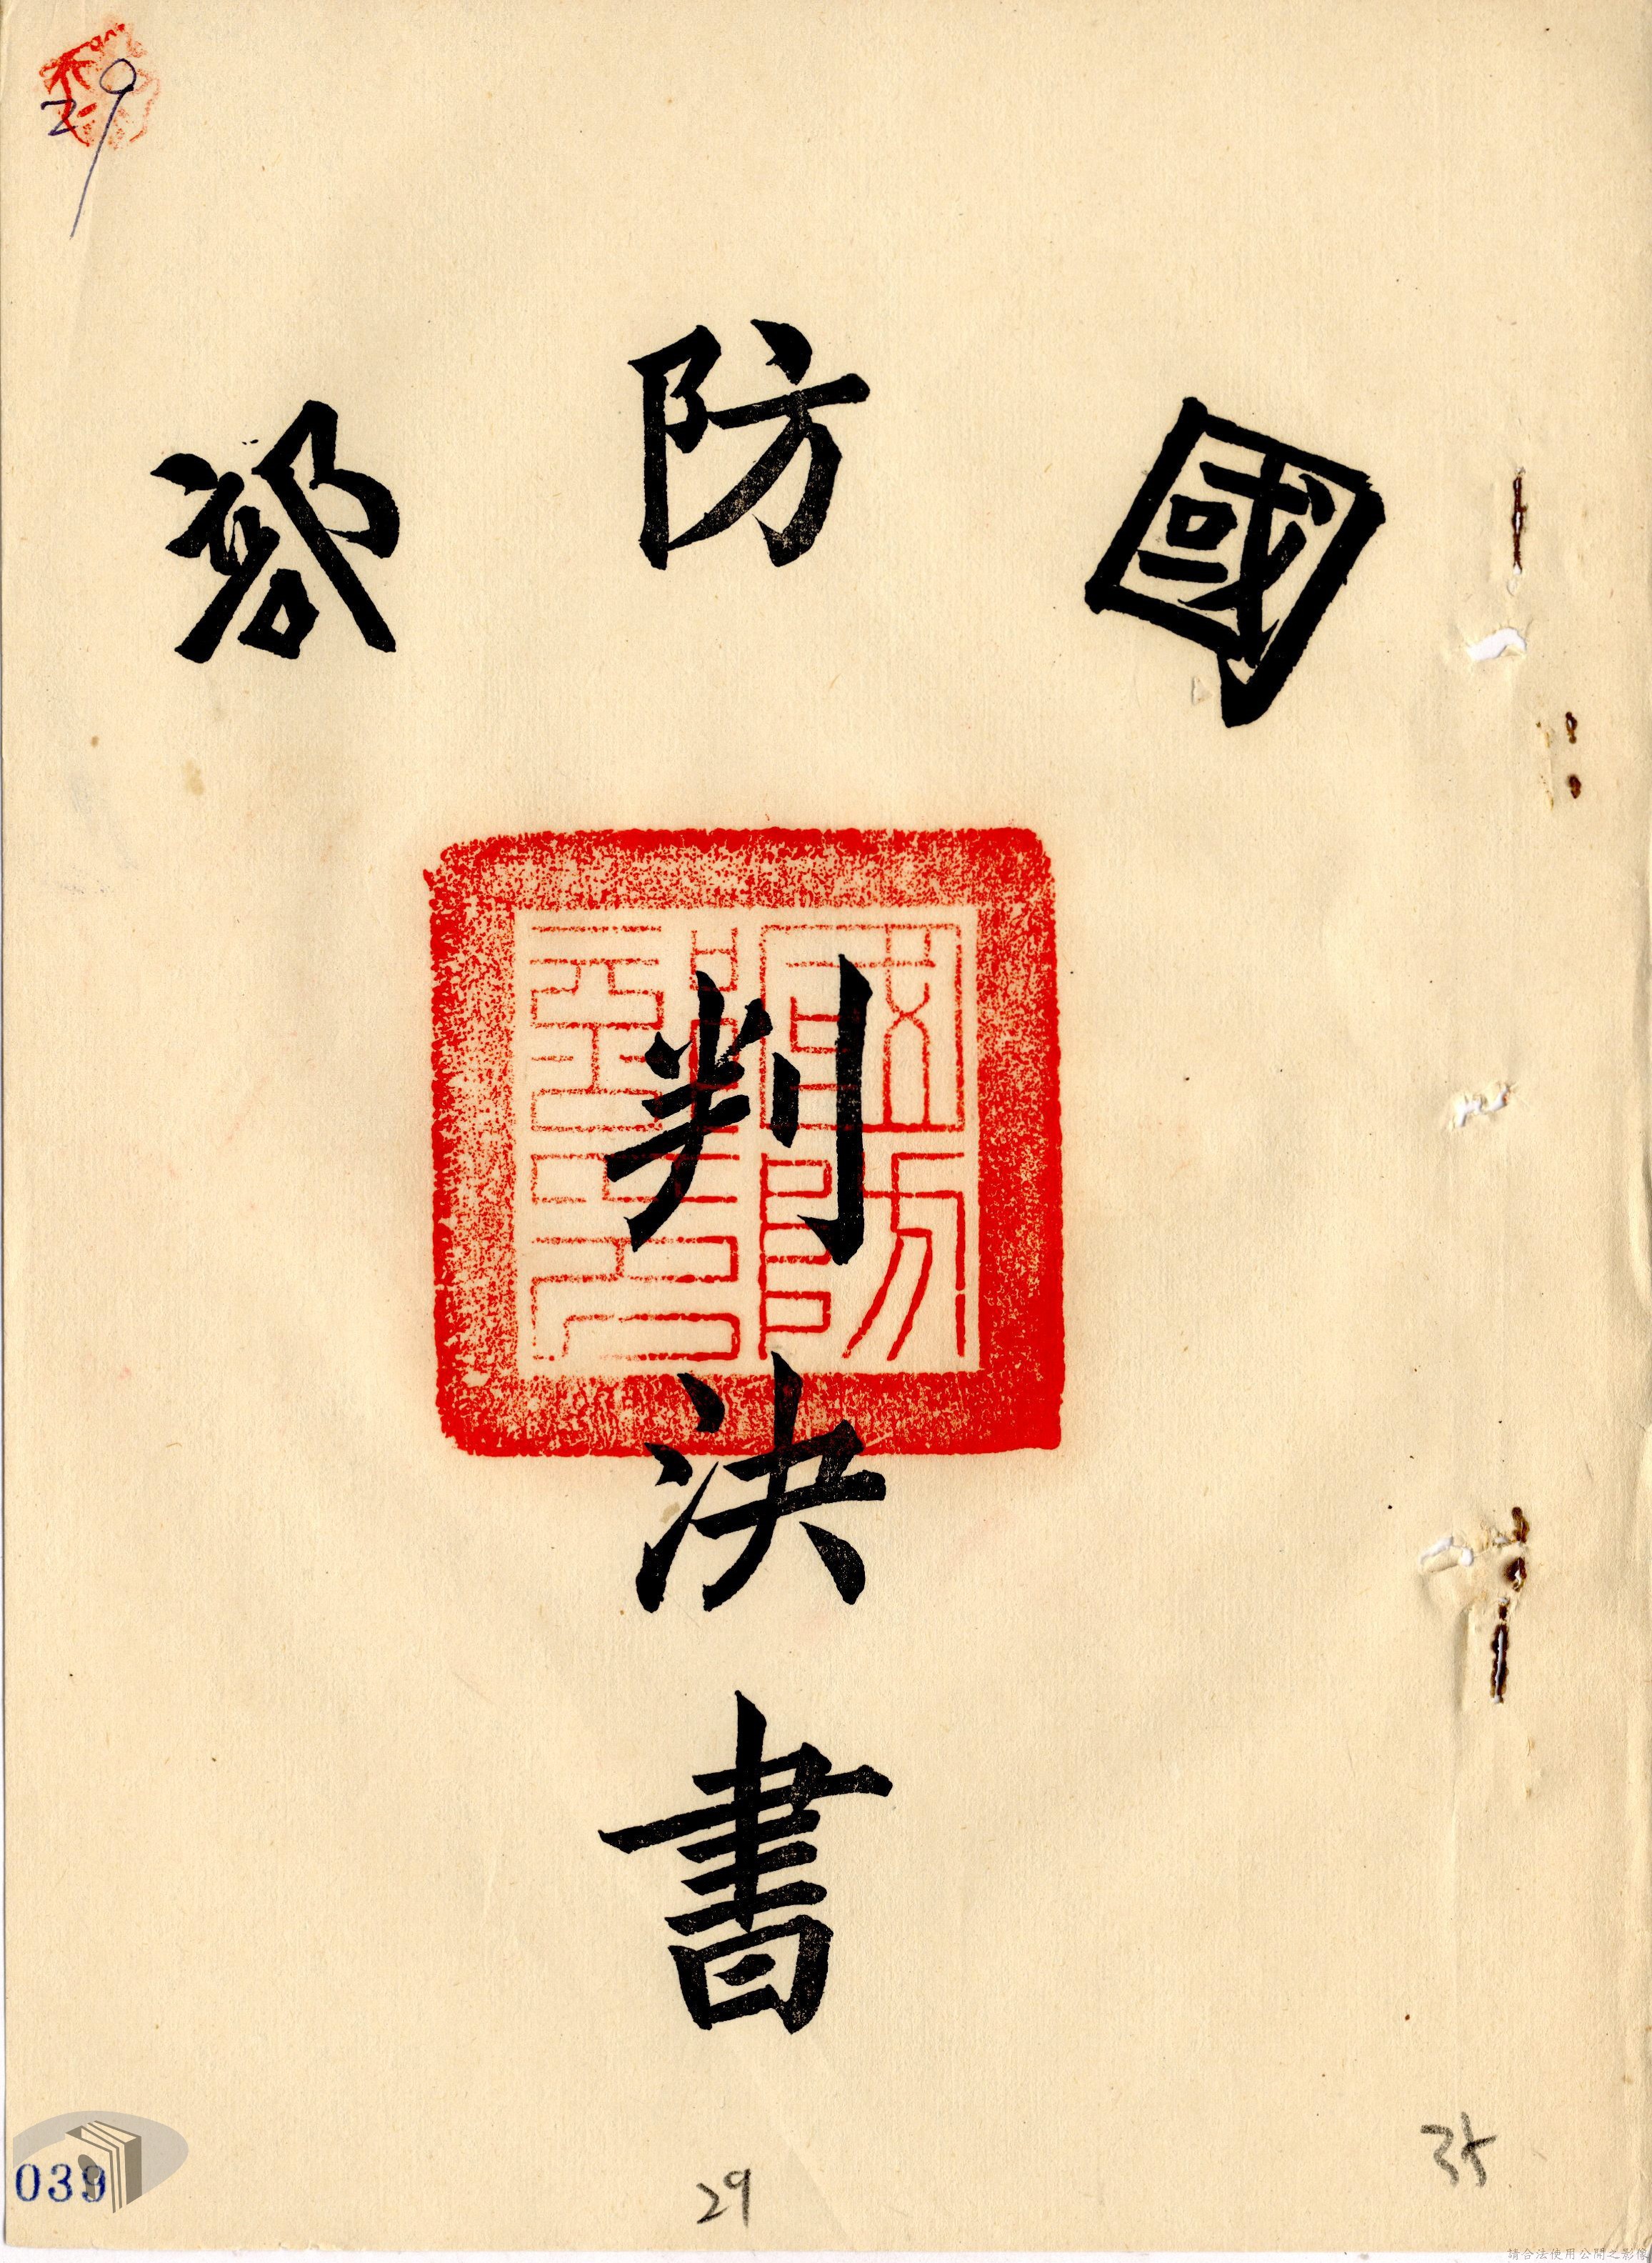 29
國防部
國防部印
判決書
039
29
35
請合法使用公開之影像